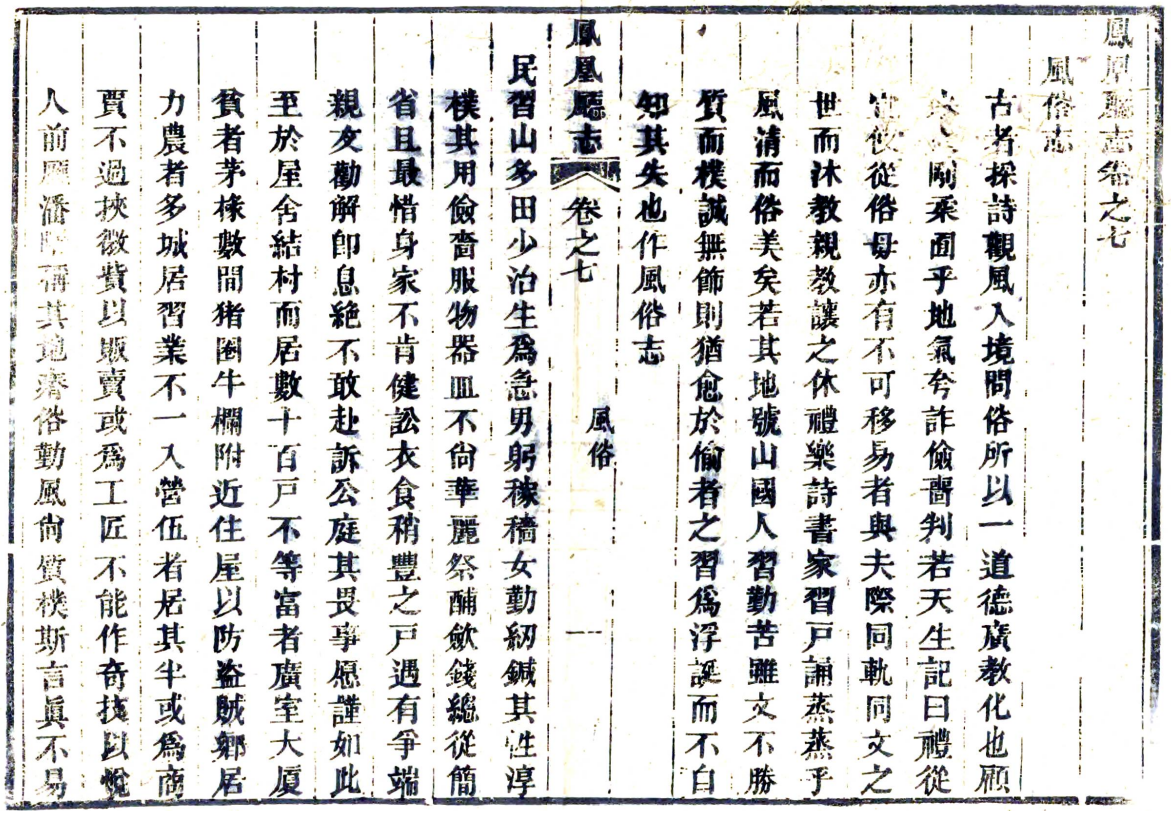 鳳凰廳志卷之七
風俗志
古者採詩觀風入境問俗所以一道德廣教化也顧
剛柔面乎地氣夸詐儉嗇判若天生記曰禮從
宜使從俗毋亦有不可移易者與夫際同軌同文之
世而沐教親教讓之休禮樂詩書家習戸誦蒸蒸乎
風清而俗美矣若其地號山國人習勤苦雖文不勝
質而樸誠無飾則猶愈於偷者之習爲浮誕而不自
知其失也作風俗志
鳳凰廳志 卷之七 風俗 一
民習山多田少治生爲急男躬稼穡女勤紉鍼其性淳
樸其用儉嗇服物器皿不尙華麗祭酺歛錢總從簡
省且最惜身家不肯健訟衣食稍豐之戸遇有爭端
親友勸解卽息絶不敢赴訴公庭其畏事愿謹如此
至於屋舍結村而居數十百戸不等富者廣室大厦
貧者茅椽數間猪圈牛欄附近住屋以防盜賊鄉居
力農者多城居習業不一入營伍者居其半或爲商
賈不過挾微貲以販賣或爲工匠不能作奇技以悅
人前廳潘 稱其地瘠俗勤風尙質樸斯言眞不易